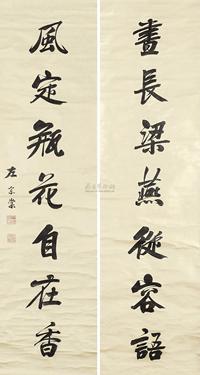 晝長梁燕從容語
風定瓶花自在香
左宗棠